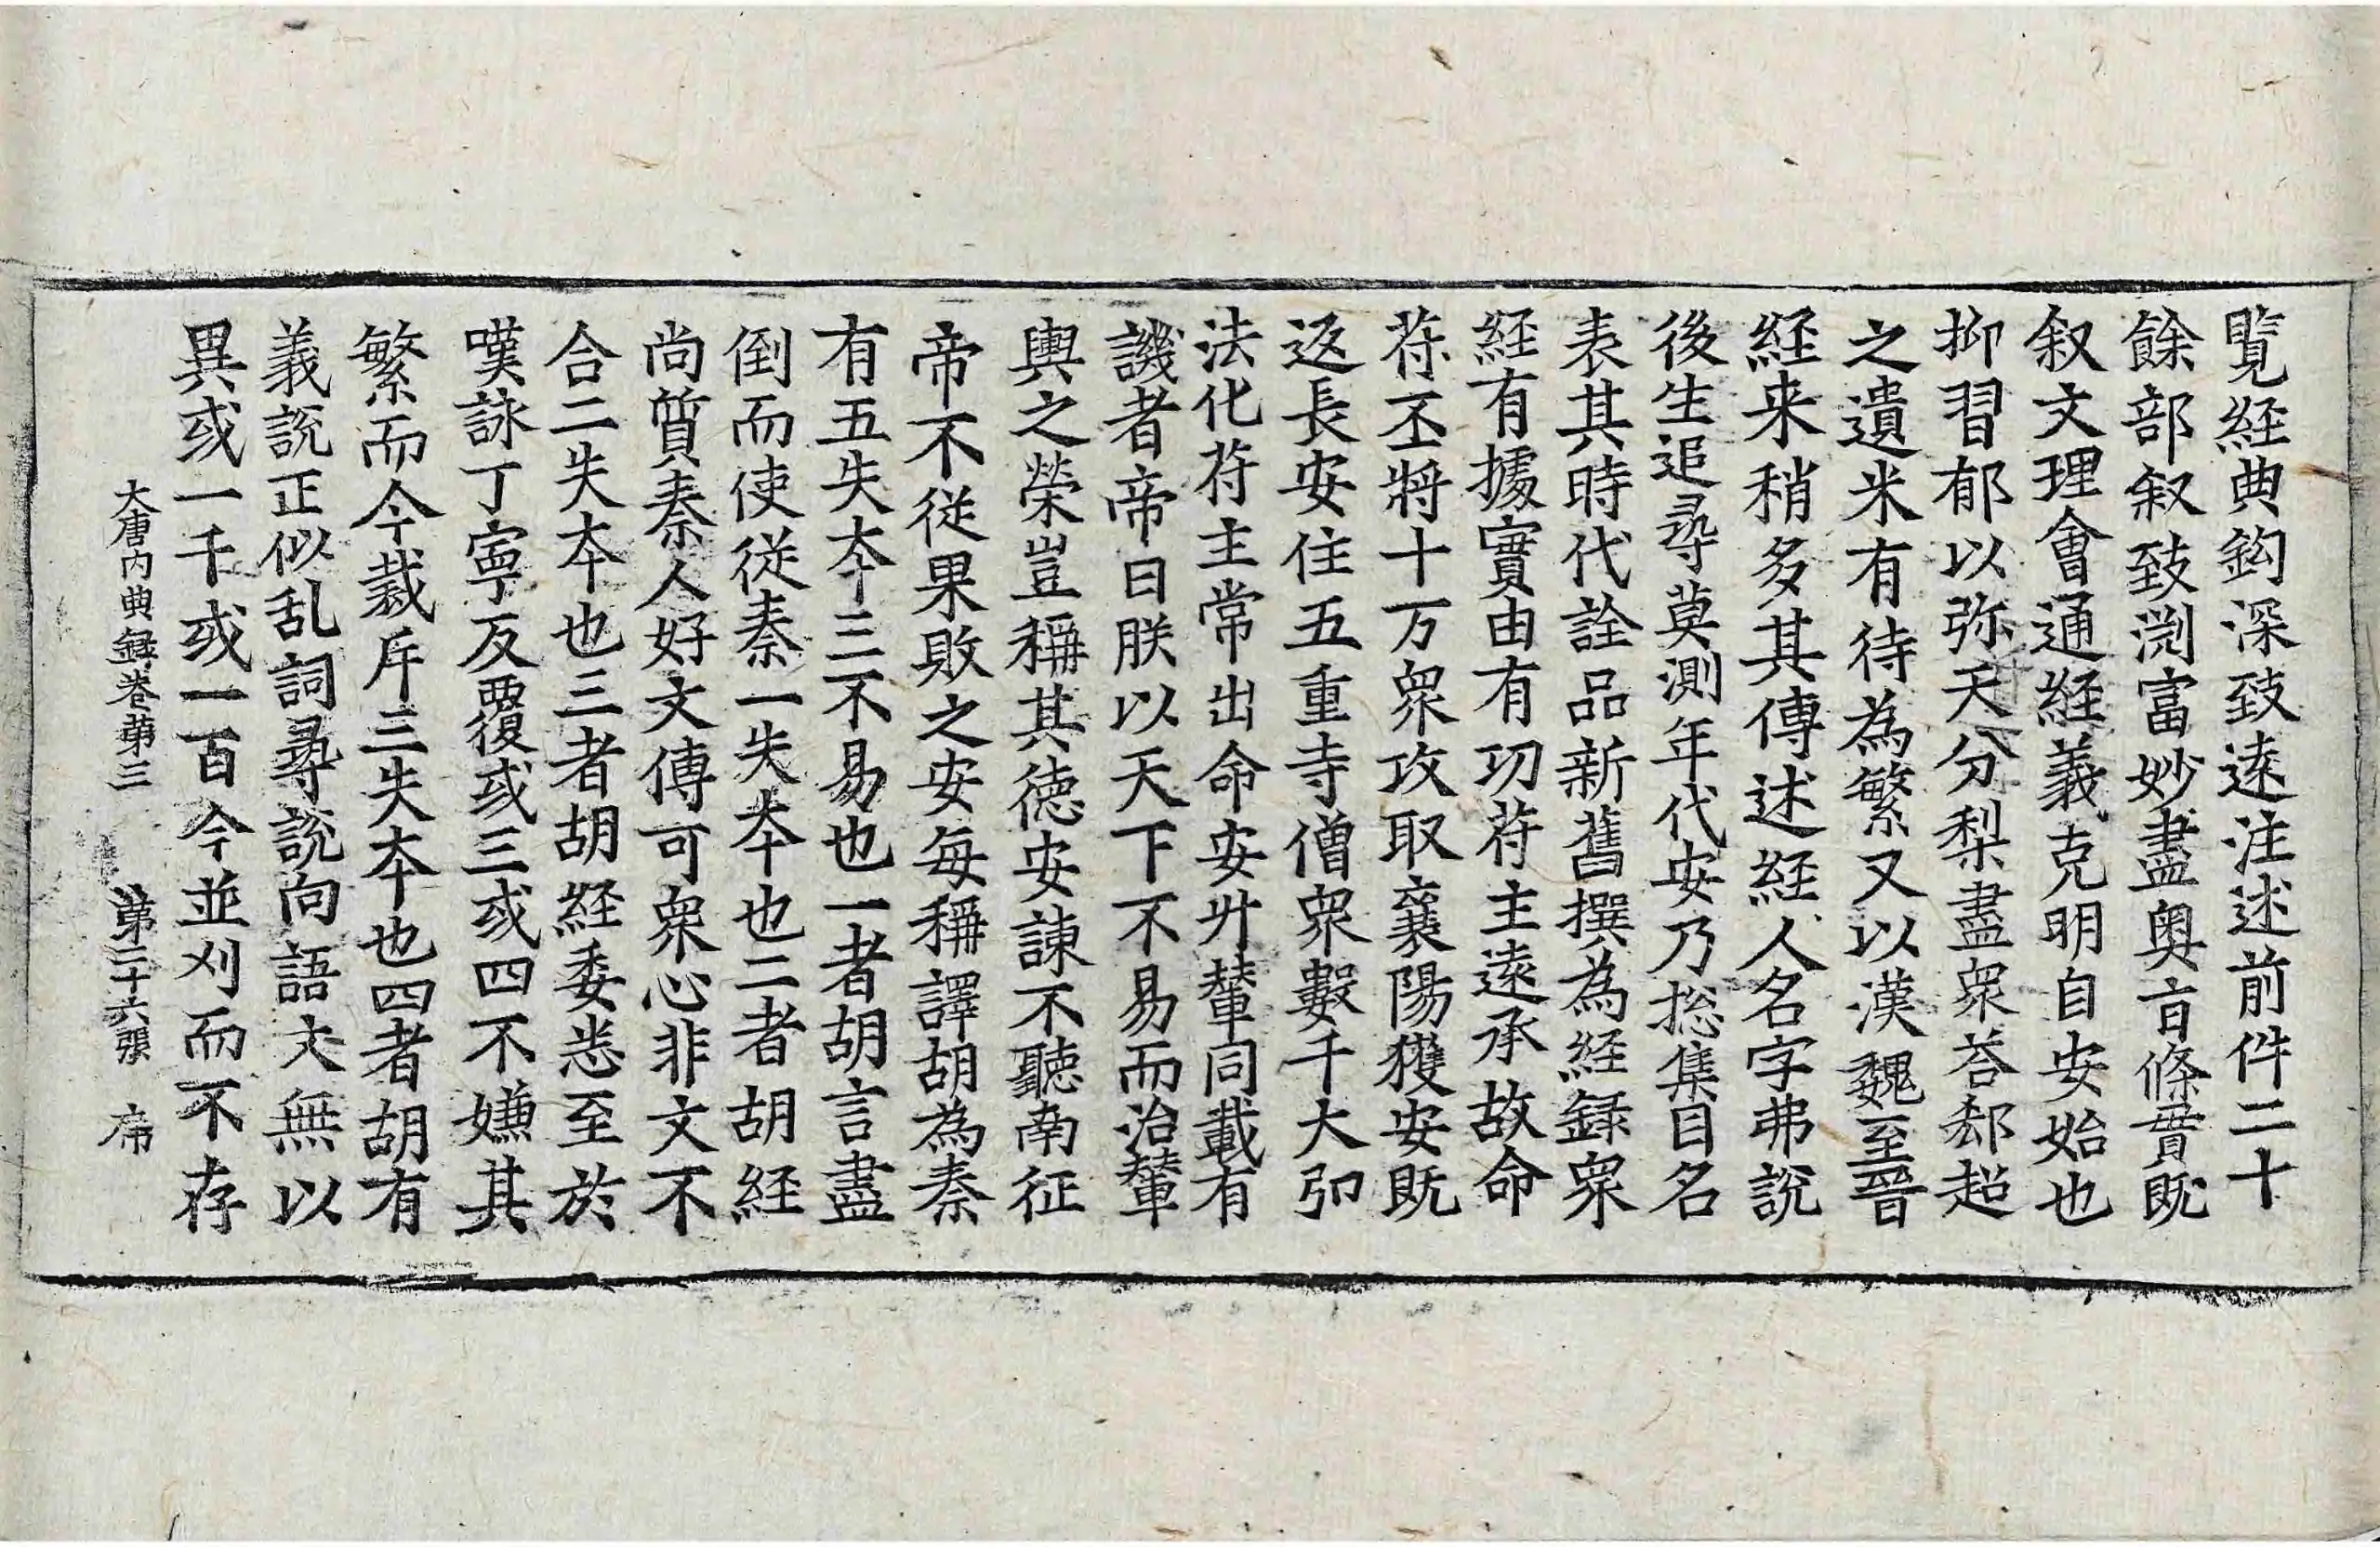 覽経典鈎深致遠注述前件二十
餘部叙致渕富妙盡奥㫖條貫既
叙文理會通経義克明自安始也
抑習郁以弥天分梨盡衆荅郄超
之遺米有待為繁又以漢魏至晉
経来稍多其傳述経人名字弗說
後生追尋莫測年代安乃捴集目名
表其時代詮品新舊撰為経録衆
経有據實由有功苻主遠承故命
苻丕將十万衆攻取襄陽獲安既
返長安住五重寺僧衆數千大弘
法化苻主常出命安升輦同載有
譏者帝曰朕以天下不易而治輦
輿之榮豈稱其徳安諫不聽南征
帝不従果敗之安每稱譯胡為秦
有五失本三不易也一者胡言盡
倒而使従秦一失本也二者胡経
尚質秦人好文傳可衆心非文不
合二失本也三者胡経委悉至於
嘆詠丁寧反覆或三或四不嫌其
繁而今裁斥三失本也四者胡有
義說正似乱詞尋說向語文無以
異或一千或一百今並刈而不存
大唐内典録卷第三　第二十六張　帝